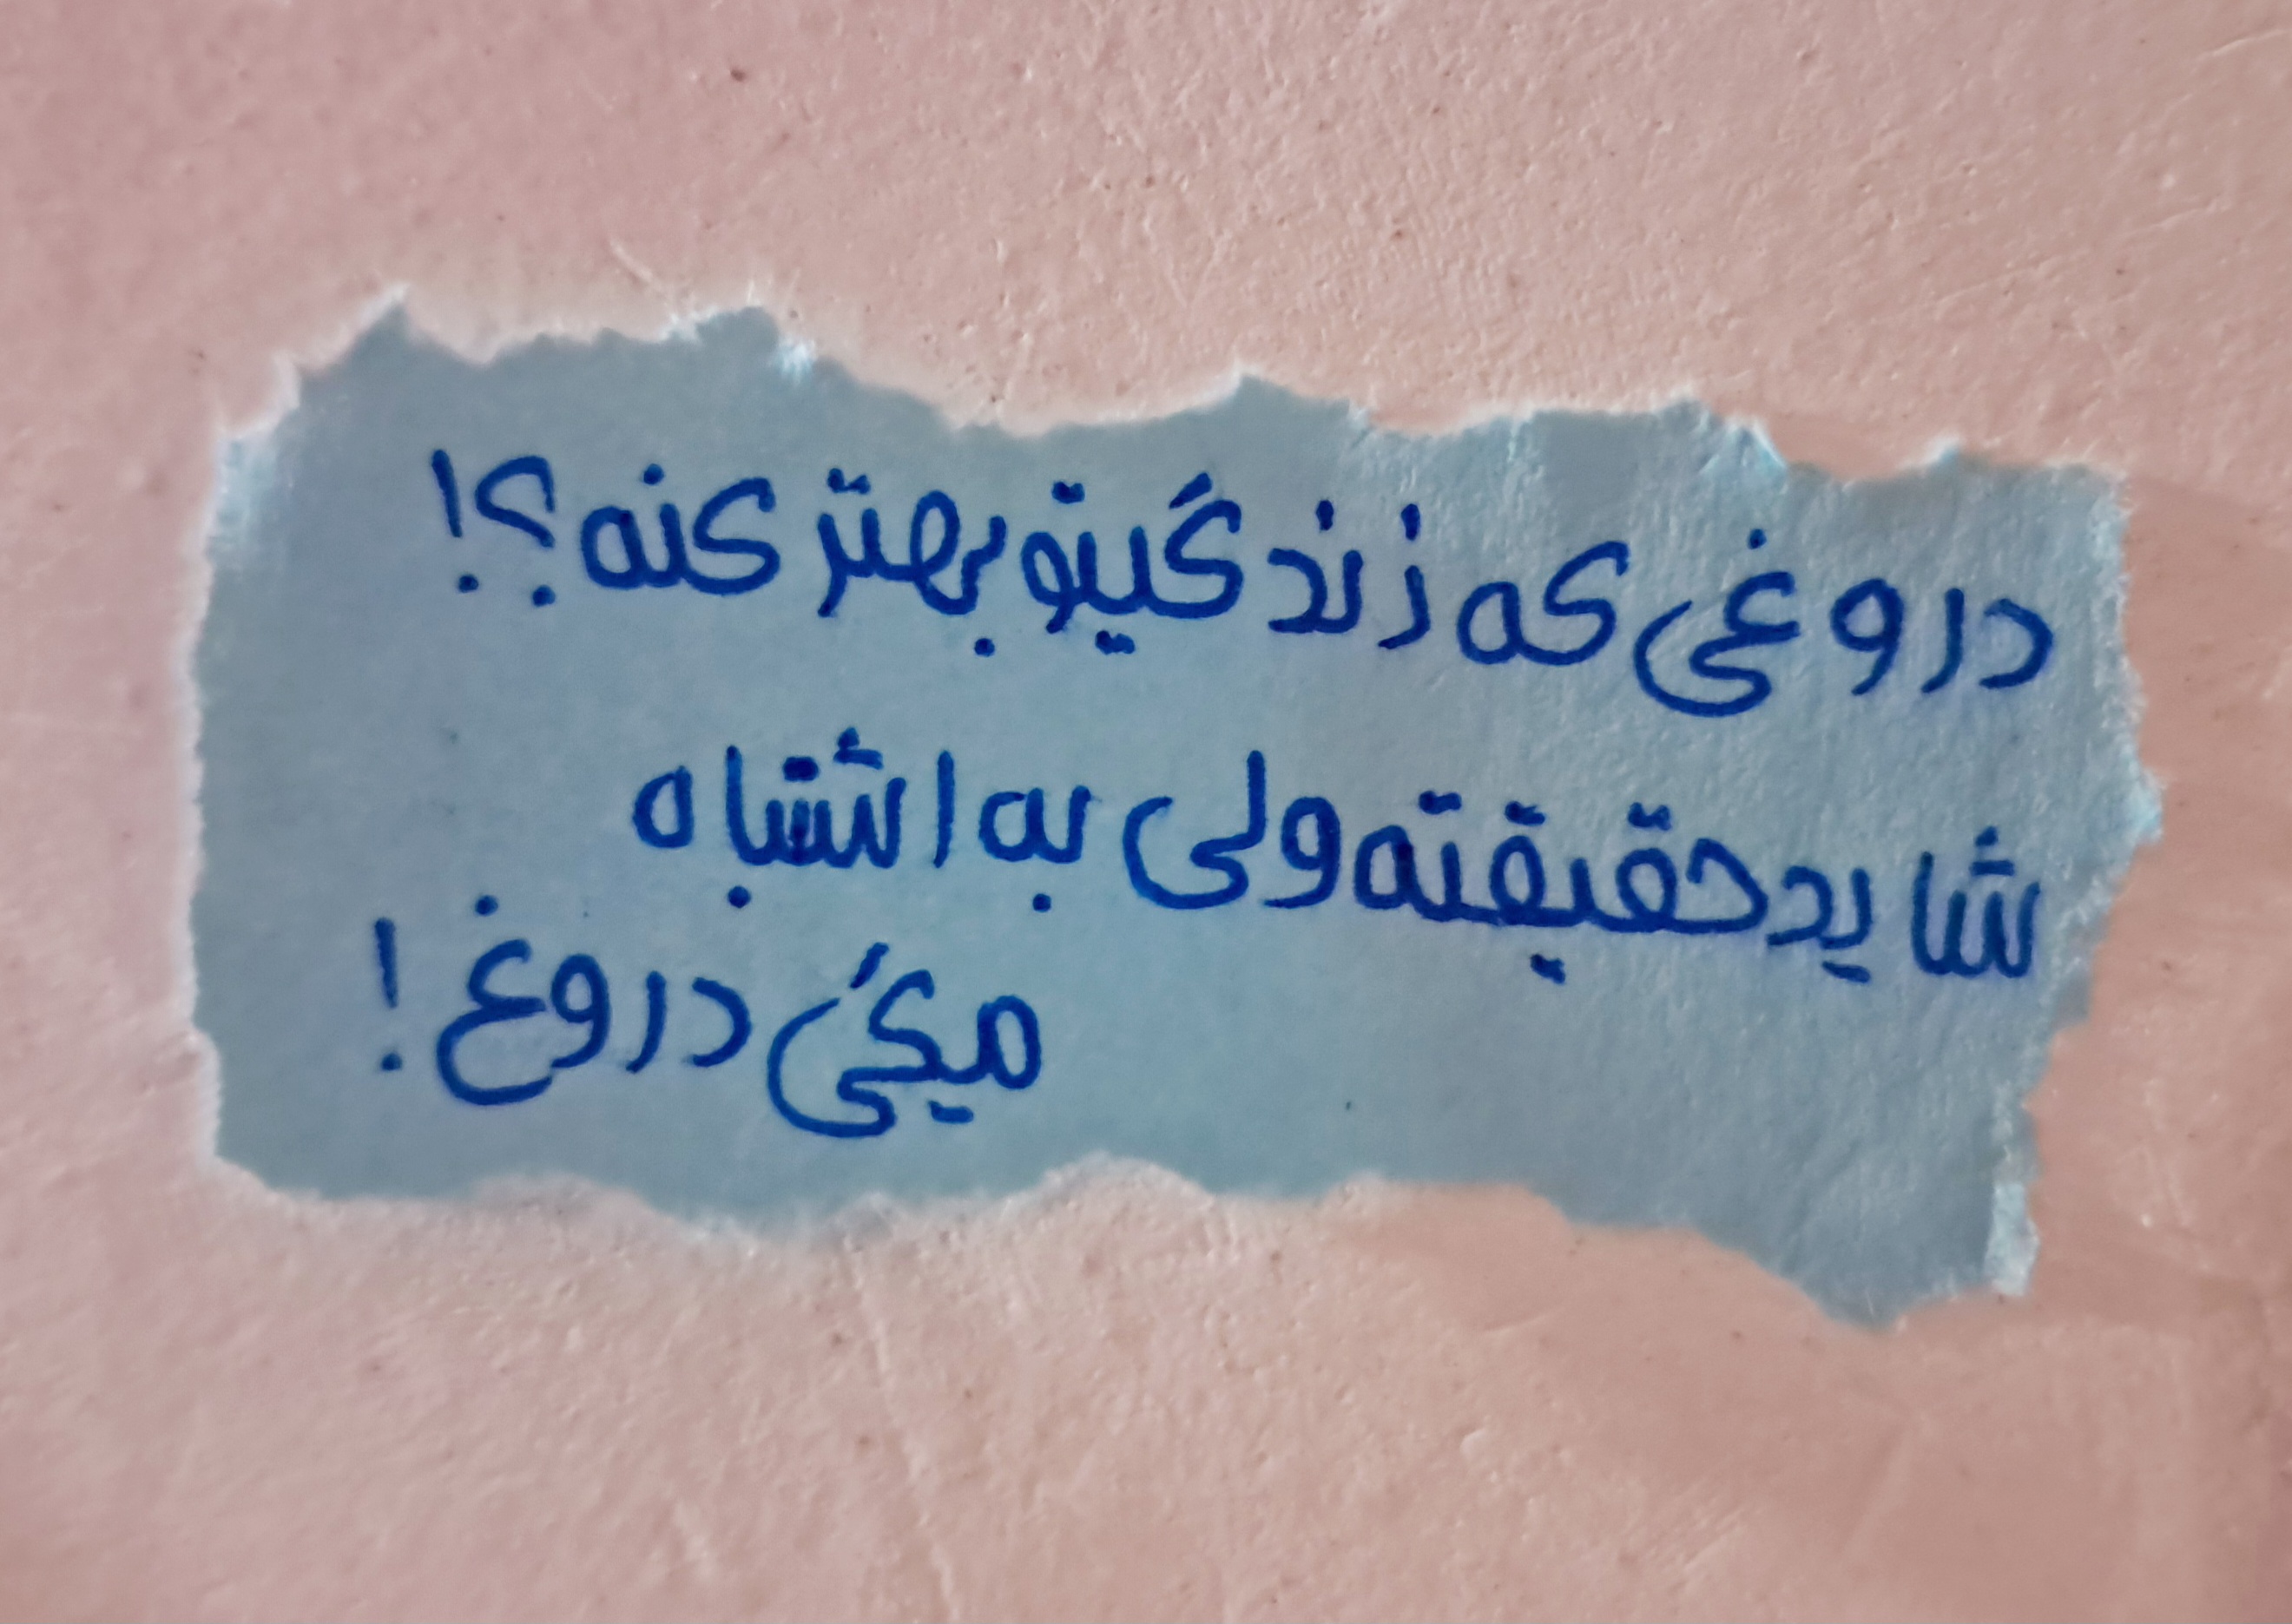 دروغی که زندگیتو بهتر کنه؟!
شاید حقیقته ولی به اشتباه
میگی دروغ!